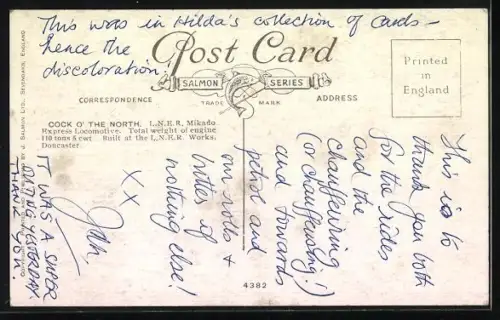 This was in Hilda's collection of cards –
hence the
discoloration!
Post Card
SALMON SERIES
TRADE MARK
CORRESPONDENCE
ADDRESS
Printed
in
England
COCK O' THE NORTH, L.N.E.R. Mikado
Express Locomotive. Total weight of engine
110 tons 5 cwt Built at the L.N.E.R. Works,
Doncaster.
This is to
thank you both
for the rides
and the
chauffeuring
(or chauffeusing!)
and towards
petrol and
our rolls +
butter if
nothing else!
XX
Jan.
IT WAS A SUPER
OUTING YESTERDAY.
THANK YOU.
BY J. SALMON LTD., SEVENOAKS, ENGLAND
4382